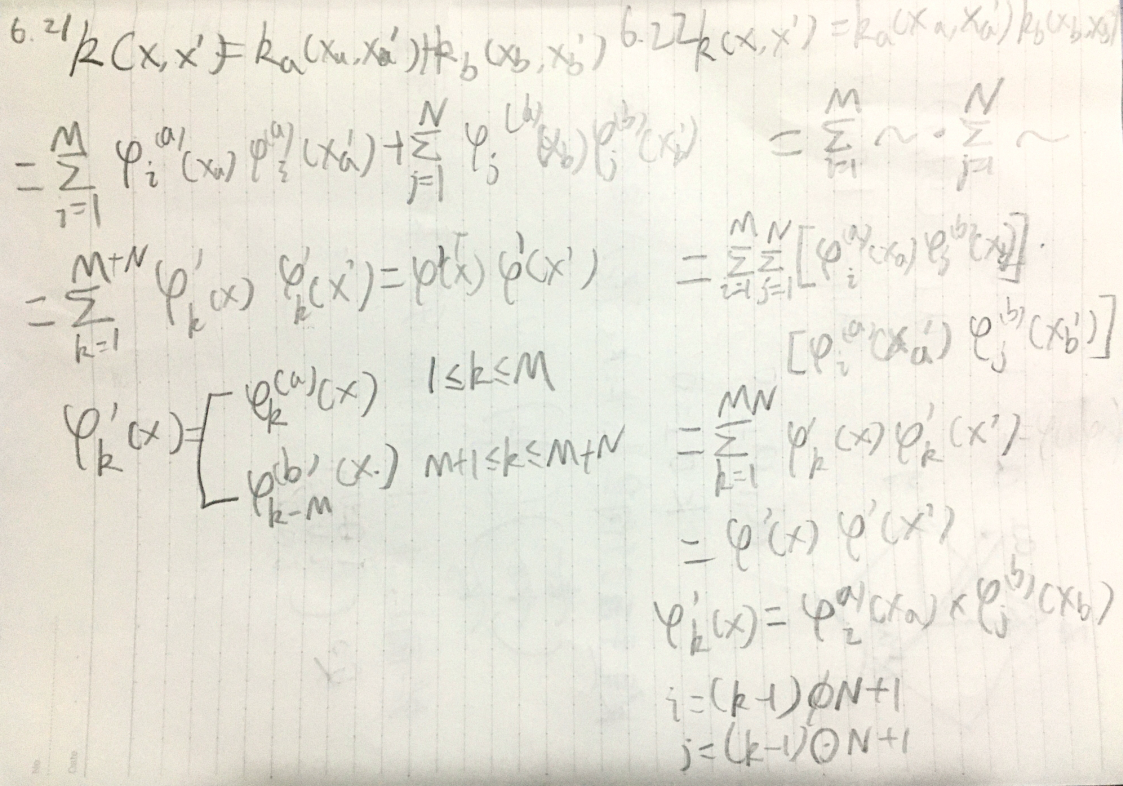 6.21 k(x, x') = k_a(x_a, x_a') + k_b(x_b, x_b')
= \sum_{i=1}^{M} φ_i^{(a)}(x_a) φ_i^{(a)}(x_a') + \sum_{j=1}^{N} φ_j^{(b)}(x_b) φ_j^{(b)}(x_b')
= \sum_{k=1}^{M+N} φ'_k(x) φ'_k(x') = φ'(x)^T φ'(x')
φ'_k(x) = [ φ_k^{(a)}(x) 1≤k≤M
φ_{k-M}^{(b)}(x.) M+1≤k≤M+N
6.22 k(x, x') = k_a(x_a, x_a') k_b(x_b, x_b')
= \sum_{i=1}^{M} ~ · \sum_{j=1}^{N} ~
= \sum_{i=1}^{M} \sum_{j=1}^{N} [φ_i^{(a)}(x_a) φ_j^{(b)}(x_b)] ·
[φ_i^{(a)}(x_a') φ_j^{(b)}(x_b')]
= \sum_{k=1}^{MN} φ'_k(x) φ'_k(x')
= φ'(x) φ'(x')
φ'_k(x) = φ_i^{(a)}(x_a) × φ_j^{(b)}(x_b)
i = (k-1) ϕ N + 1
j = (k-1) ⊙ N + 1
No
Date